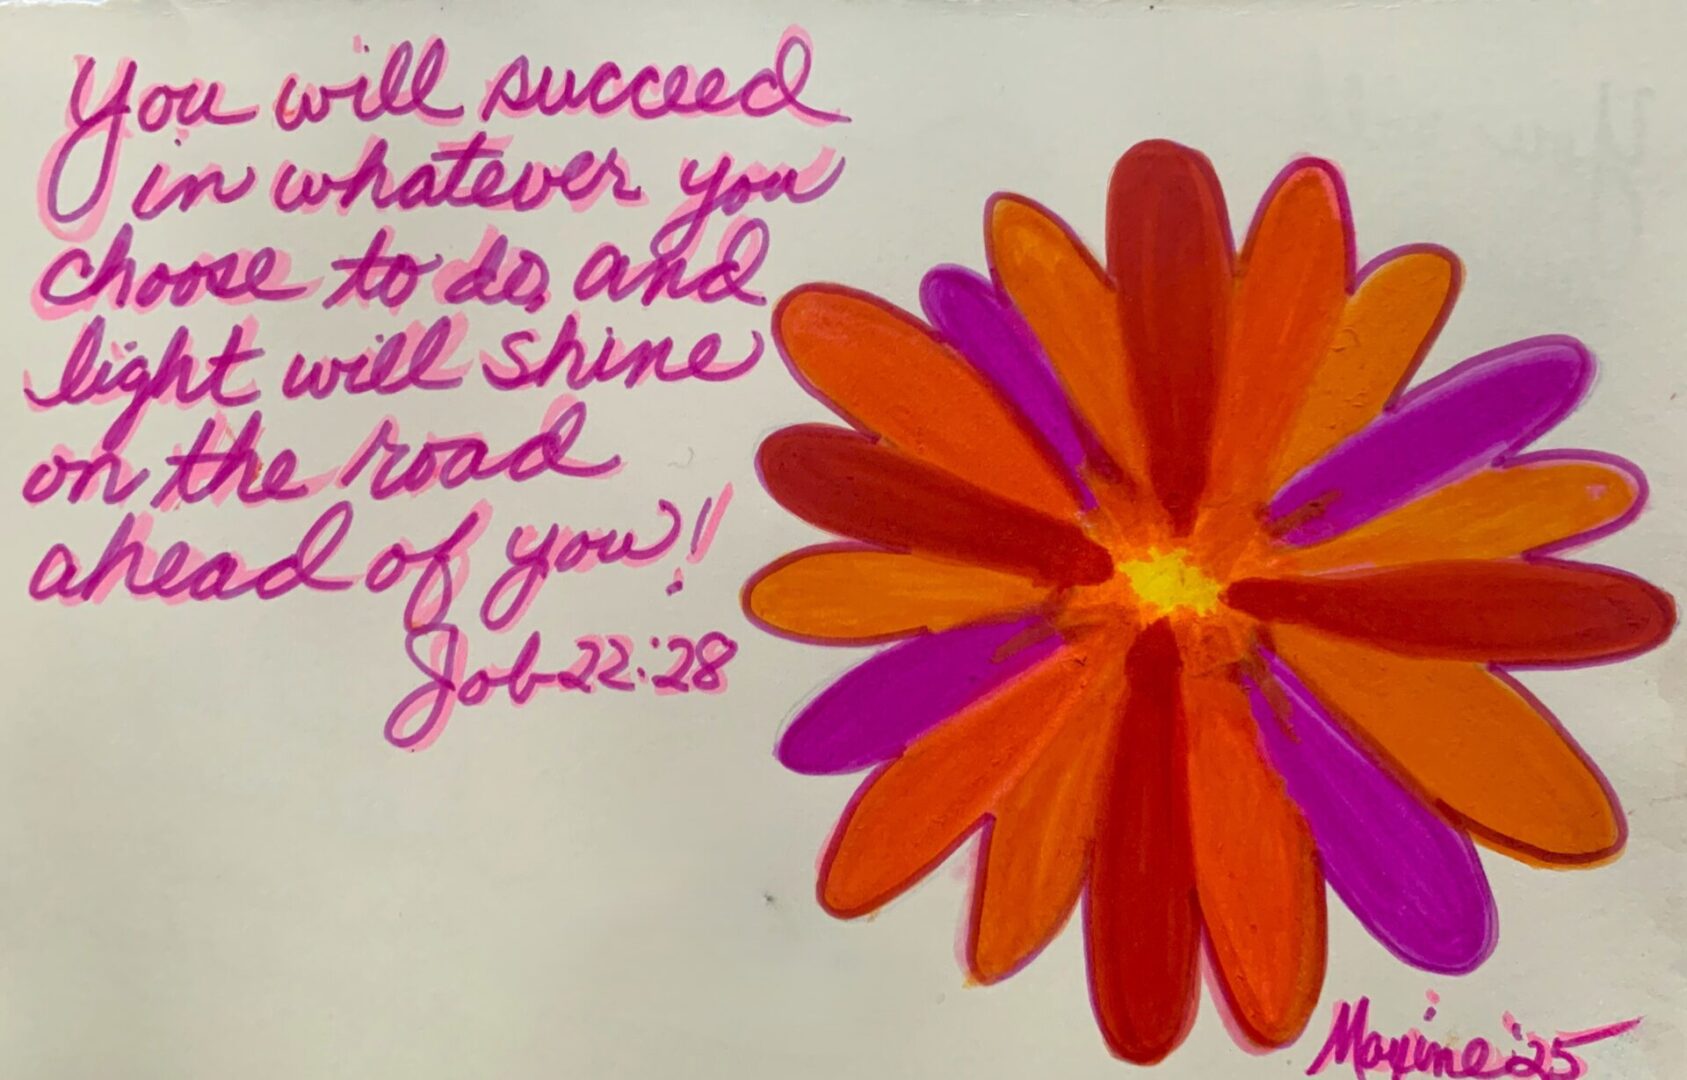 You will succeed
in whatever you
choose to do, and
light will shine
on the road
ahead of you!
Job 22:28
Maxine '25